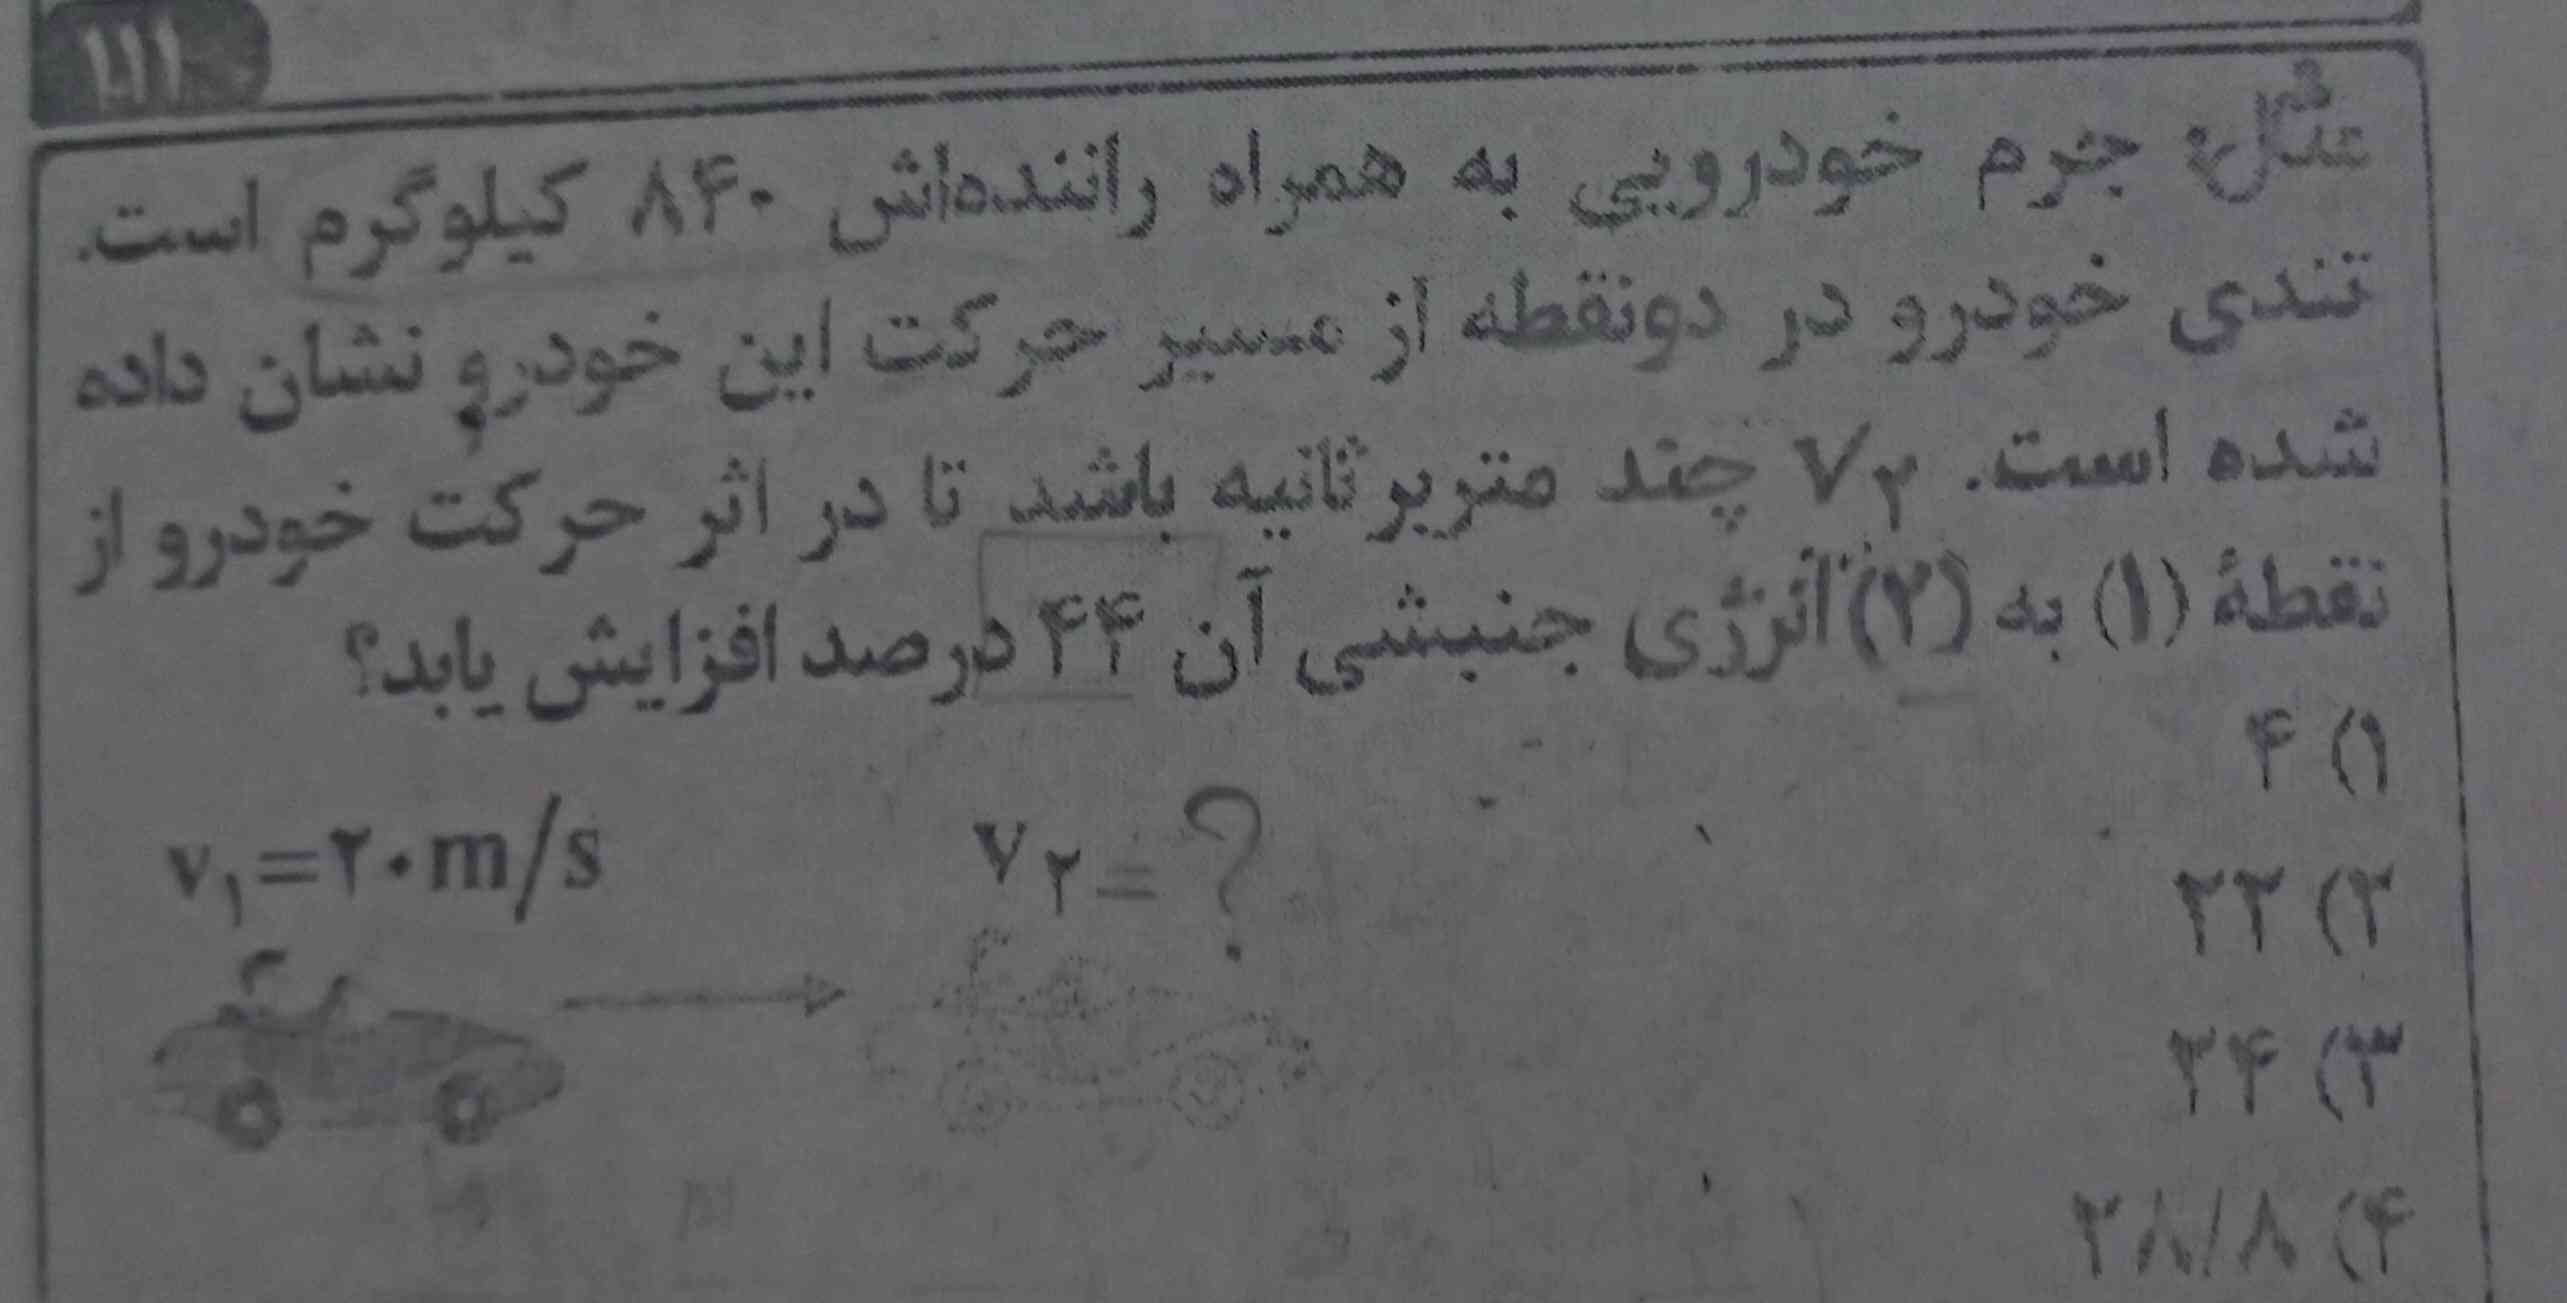 ۱۱۱
مثال: جرم خودرویی به همراه راننده‌اش ۸۴۰ کیلوگرم است.
تندی خودرو در دونقطه از مسیر حرکت این خودرو نشان داده
شده است. V۲ چند متربرثانیه باشد تا در اثر حرکت خودرو از
نقطهٔ (۱) به (۲) انرژی جنبشی آن ۴۴ درصد افزایش یابد؟
۱) ۴
۲) ۲۲
۳) ۲۴
۴) ۲۸/۸
v۱=۲۰m/s
v۲=?